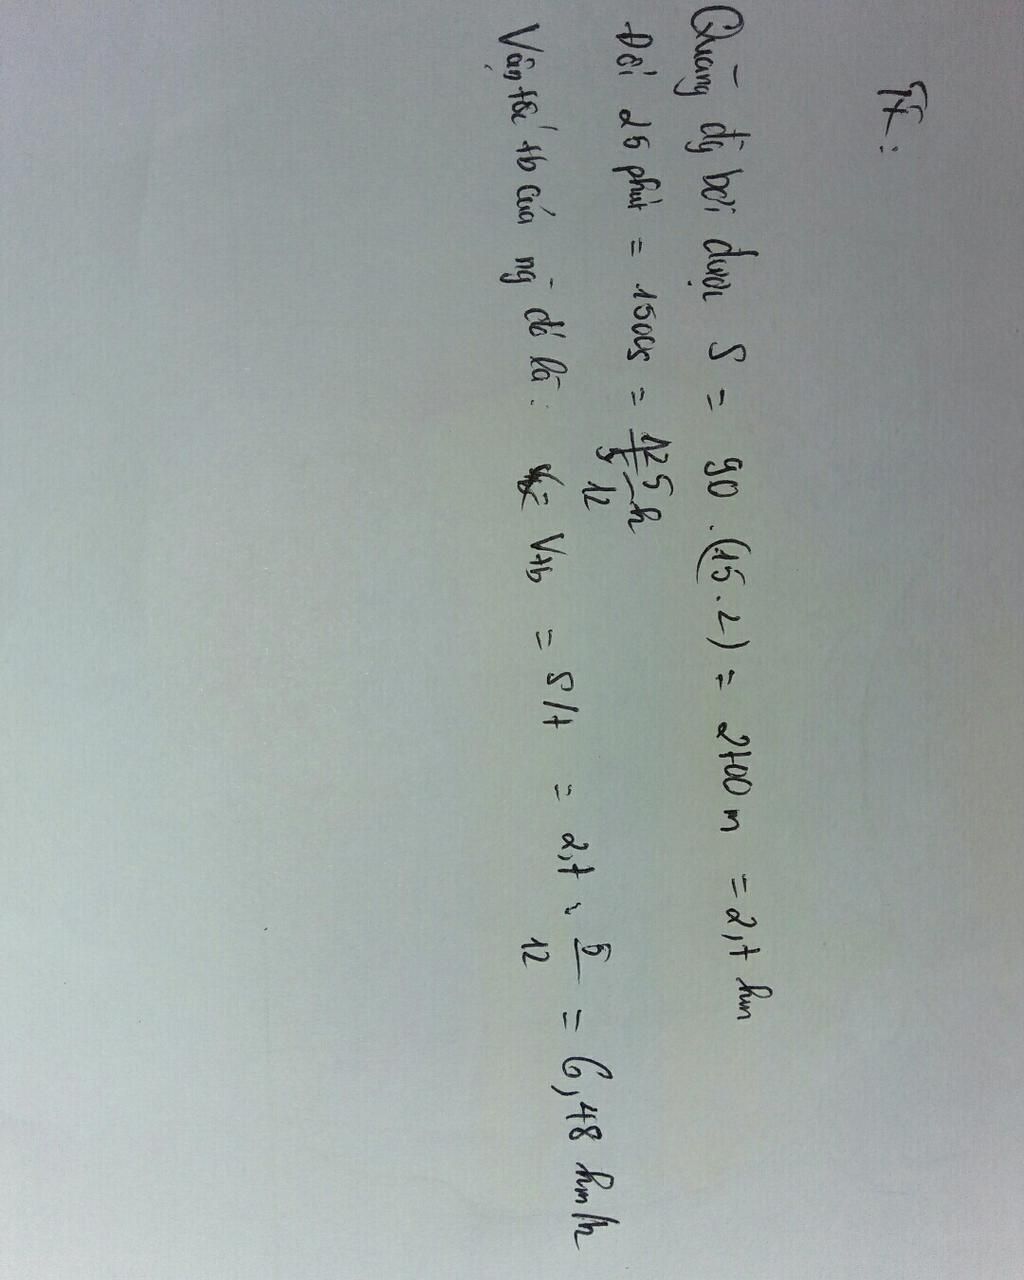 TX:
Quãng đg bơi được S = 90 . (15 . 2) = 2700 m = 2,7 km
Đổi 25 phút = 1500s = 5/12 h
Vận tốc tb của ng đó là: Vtb = S/t = 2,7 : 5/12 = 6,48 km/h